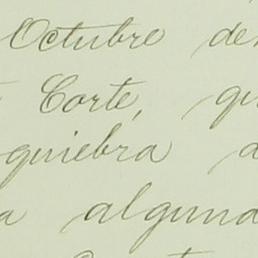 Octubre de
Corte, qu
quiebra a
a alguna